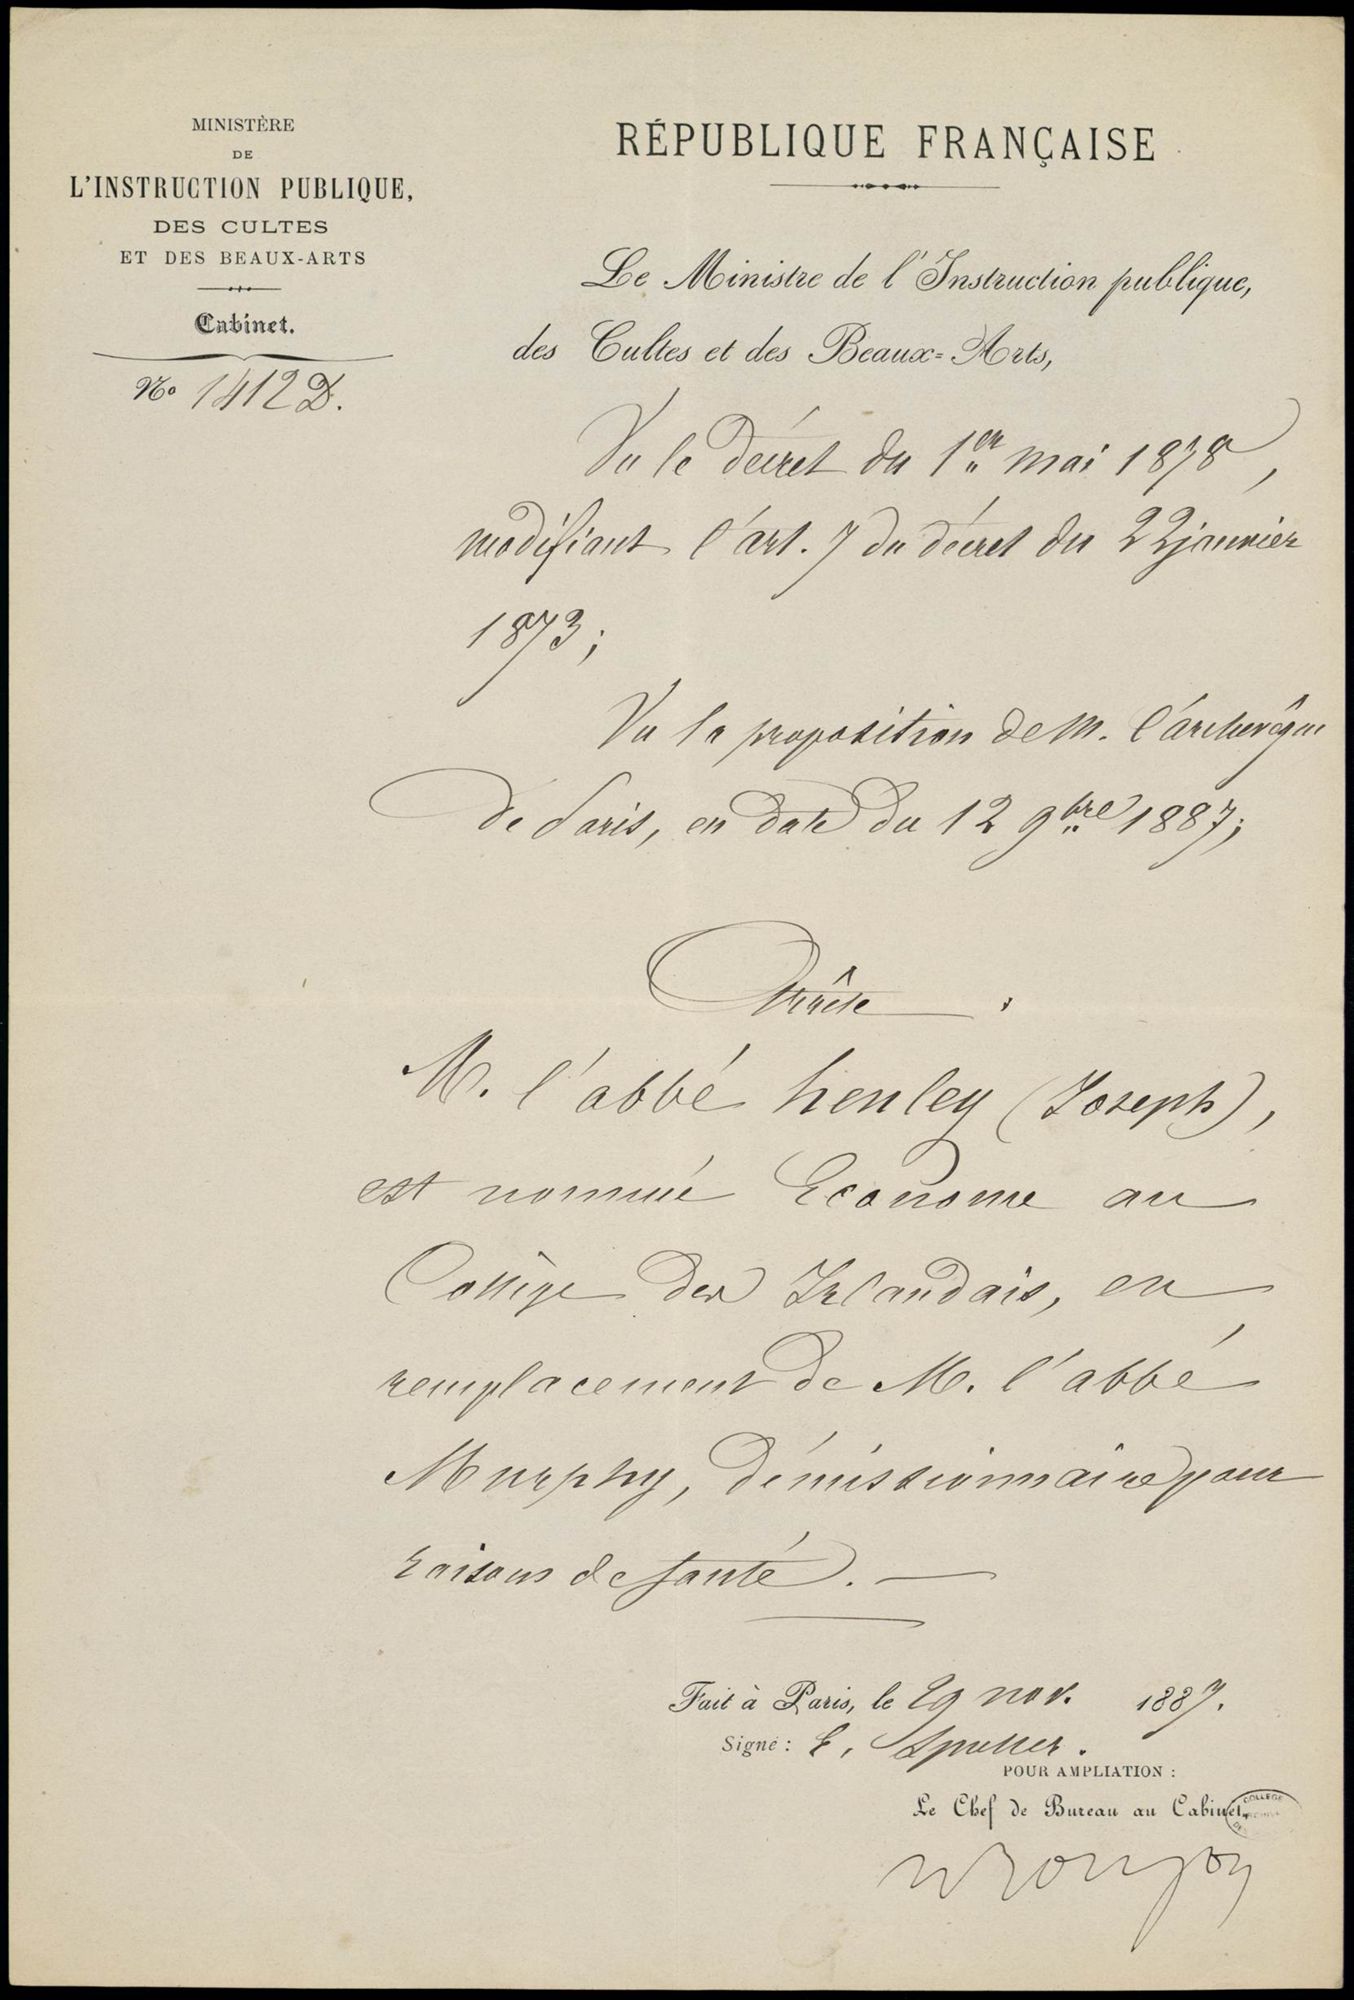 MINISTÈRE
DE
L'INSTRUCTION PUBLIQUE,
DES CULTES
ET DES BEAUX-ARTS
Cabinet.
No 1412 D.
RÉPUBLIQUE FRANÇAISE
Le Ministre de l'Instruction publique,
des Cultes et des Beaux-Arts,
Vu le décret du 1er mai 1878,
modifiant l'art. 7 du décret du 22 janvier
1873;
Vu la proposition de M. l'archevêque
de Paris, en date du 12 9bre 1887;
Arrête :
M. l'abbé henley (Joseph),
est nommé Econome au
Collège des Irlandais, en
remplacement de M. l'abbé
Murphy, démissionnaire pour
raisons de santé. —
Fait à Paris, le 29 nov. 1887.
Signé : E. Spuller.
POUR AMPLIATION :
Le Chef de Bureau au Cabinet,
COLLEGE